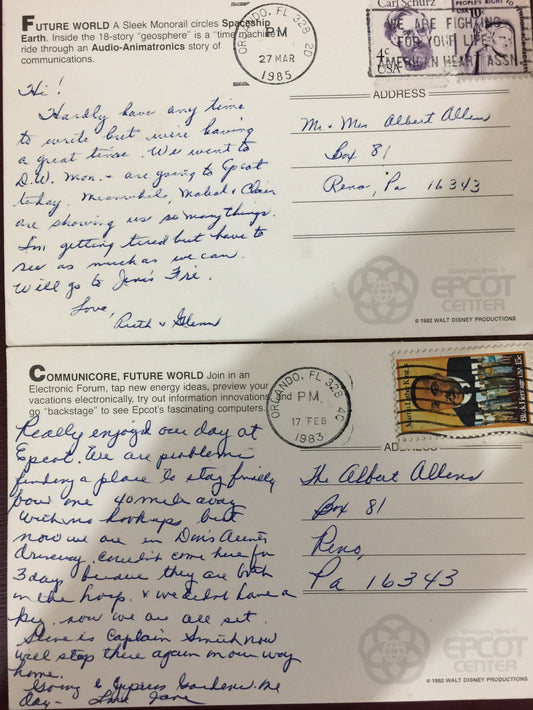 FUTURE WORLD A Sleek Monorail circles Spaceship
Earth. Inside the 18-story "geosphere" is a "time machine"
ride through an Audio-Animatronics story of
communications.
ORLANDO, FL 328 20
PM
27 MAR
1985
Carl Schurz
4c
USA
PEOPLE'S RIGHT TO
USA 10c
WE ARE FIGHTING
FOR YOUR LIFE
AMERICAN HEART ASSN.
Hi!
Hardly have any time
to write but were having
a great time. We went to
D.W. Mon. & are going to Epcot
today. Meanwhile, &
are showing us so many things.
I'm getting tired but have to
see as much as we can.
Will go to Jem's Fri.
Love,
Ruth & Glenn
ADDRESS
Mr & Mrs Albert Allens
Box 81
Reno, Pa 16343
Walt Disney World
EPCOT
CENTER
© 1982 WALT DISNEY PRODUCTIONS
COMMUNICORE, FUTURE WORLD Join in an
Electronic Forum, tap new energy ideas, preview your
vacations electronically, try out information innovations and
go "backstage" to see Epcot's fascinating computers.
ORLANDO, FL 328 4C
PM
17 FEB
1983
Martin Luther King Jr.
Black Heritage USA 15c
Really enjoyd our day at
Epcot. We are problems
finding a place to stay finely
one 40 mile away
with no hookups but
now we are in Don's Aunts
couldn't come here for
3 day because they are both
in the hosp. & we didnt have a
key. now we are all set.
Steve is Captain Smith now
will stop there again on our way
home.
Going to Cypress Gardens one
day - Love Jane
ADDRESS
The Albert Allens
Box 81
Reno,
Pa 16343
Walt Disney World
EPCOT
CENTER
© 1982 WALT DISNEY PRODUCTIONS